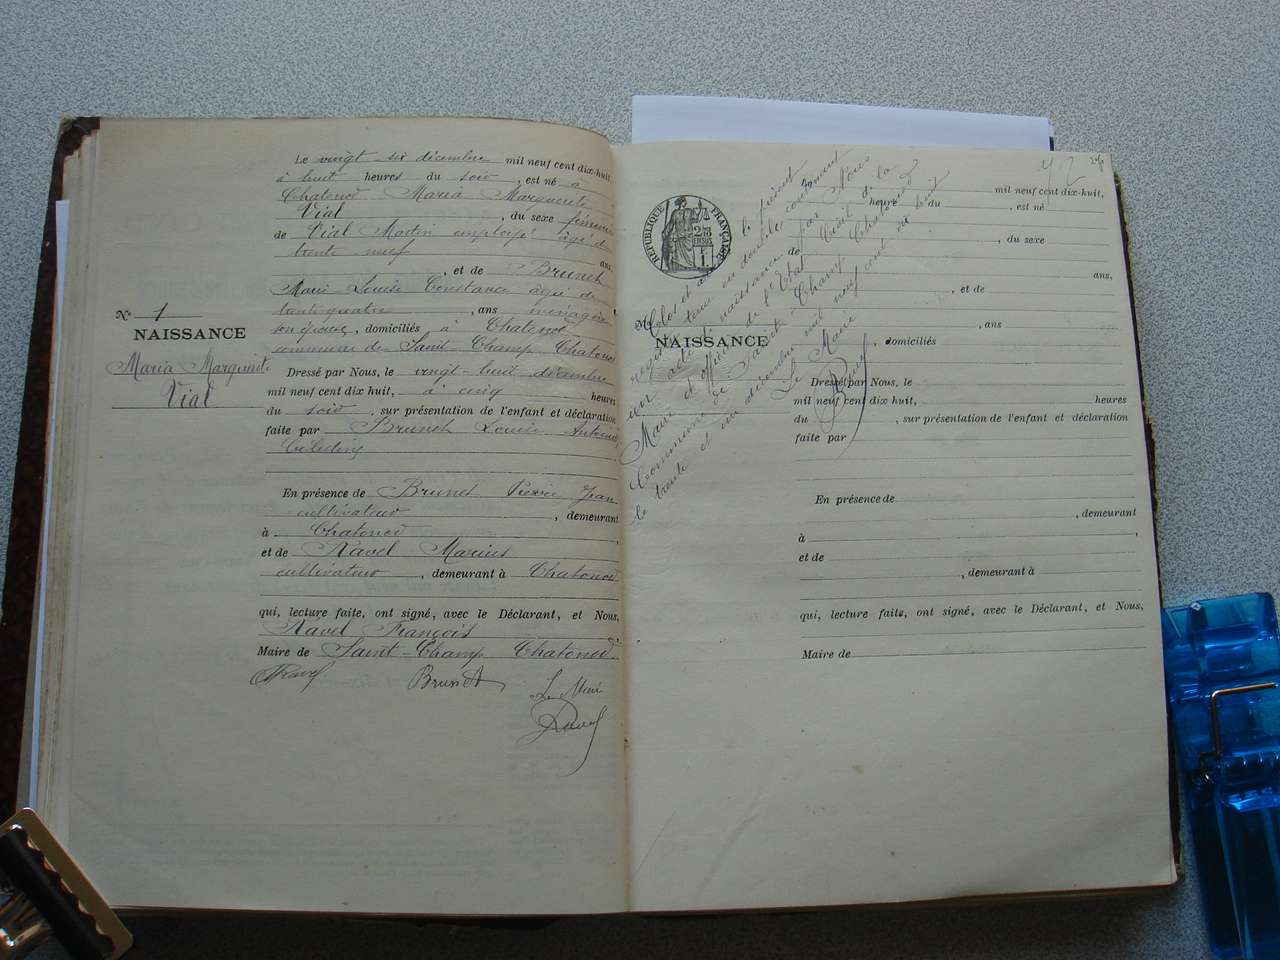 Le vingt-six décembre mil neuf cent dix-huit,
à huit heures du soir, est né à
Chatonod Maria Marguerite
Vial, du sexe féminin
de Vial Martin employé âgé de
trente neuf ans,
, et de Brunet
Marie Louise Constance âgée de
trente quatre, ans ménagère
son épouse, domiciliés à Chatonod
commune de Saint-Champ-Chatonod
N° 1
NAISSANCE
Maria Marguerite
Vial
Dressé par Nous, le vingt-huit décembre
mil neuf cent dix huit, à cinq heures
du soir, sur présentation de l'enfant et déclaration
faite par Brunet Louis Antoine
Célestin
En présence de Brunet Pierre Jean
cultivateur, demeurant
à Chatonod,
et de Ravel Marius
cultivateur, demeurant à Chatonod
qui, lecture faite, ont signé, avec le Déclarant, et Nous,
Ravel François
Maire de Saint-Champ Chatonod.
Ravel
Brunet
Le Maire
Ravel
RÉPUBLIQUE FRANÇAISE
mil neuf cent dix-huit,
heure du, est né
, du sexe
de
ans,
, et de
, ans
NAISSANCE
, domiciliés
Dressé par Nous, le
mil neuf cent dix huit, heures
du, sur présentation de l'enfant et déclaration
faite par
En présence de
, demeurant
à,
et de
, demeurant à
qui, lecture faite, ont signé, avec le Déclarant, et Nous,
Maire de
Clos et arrêté le présent
registre tenu en double contenant
un acte de naissance par Nous
Maire et officier de l'Etat Civil de la
Commune de Saint-Champ Chatonod
le trente et un décembre mil neuf cent dix huit
Le Maire
Ravel